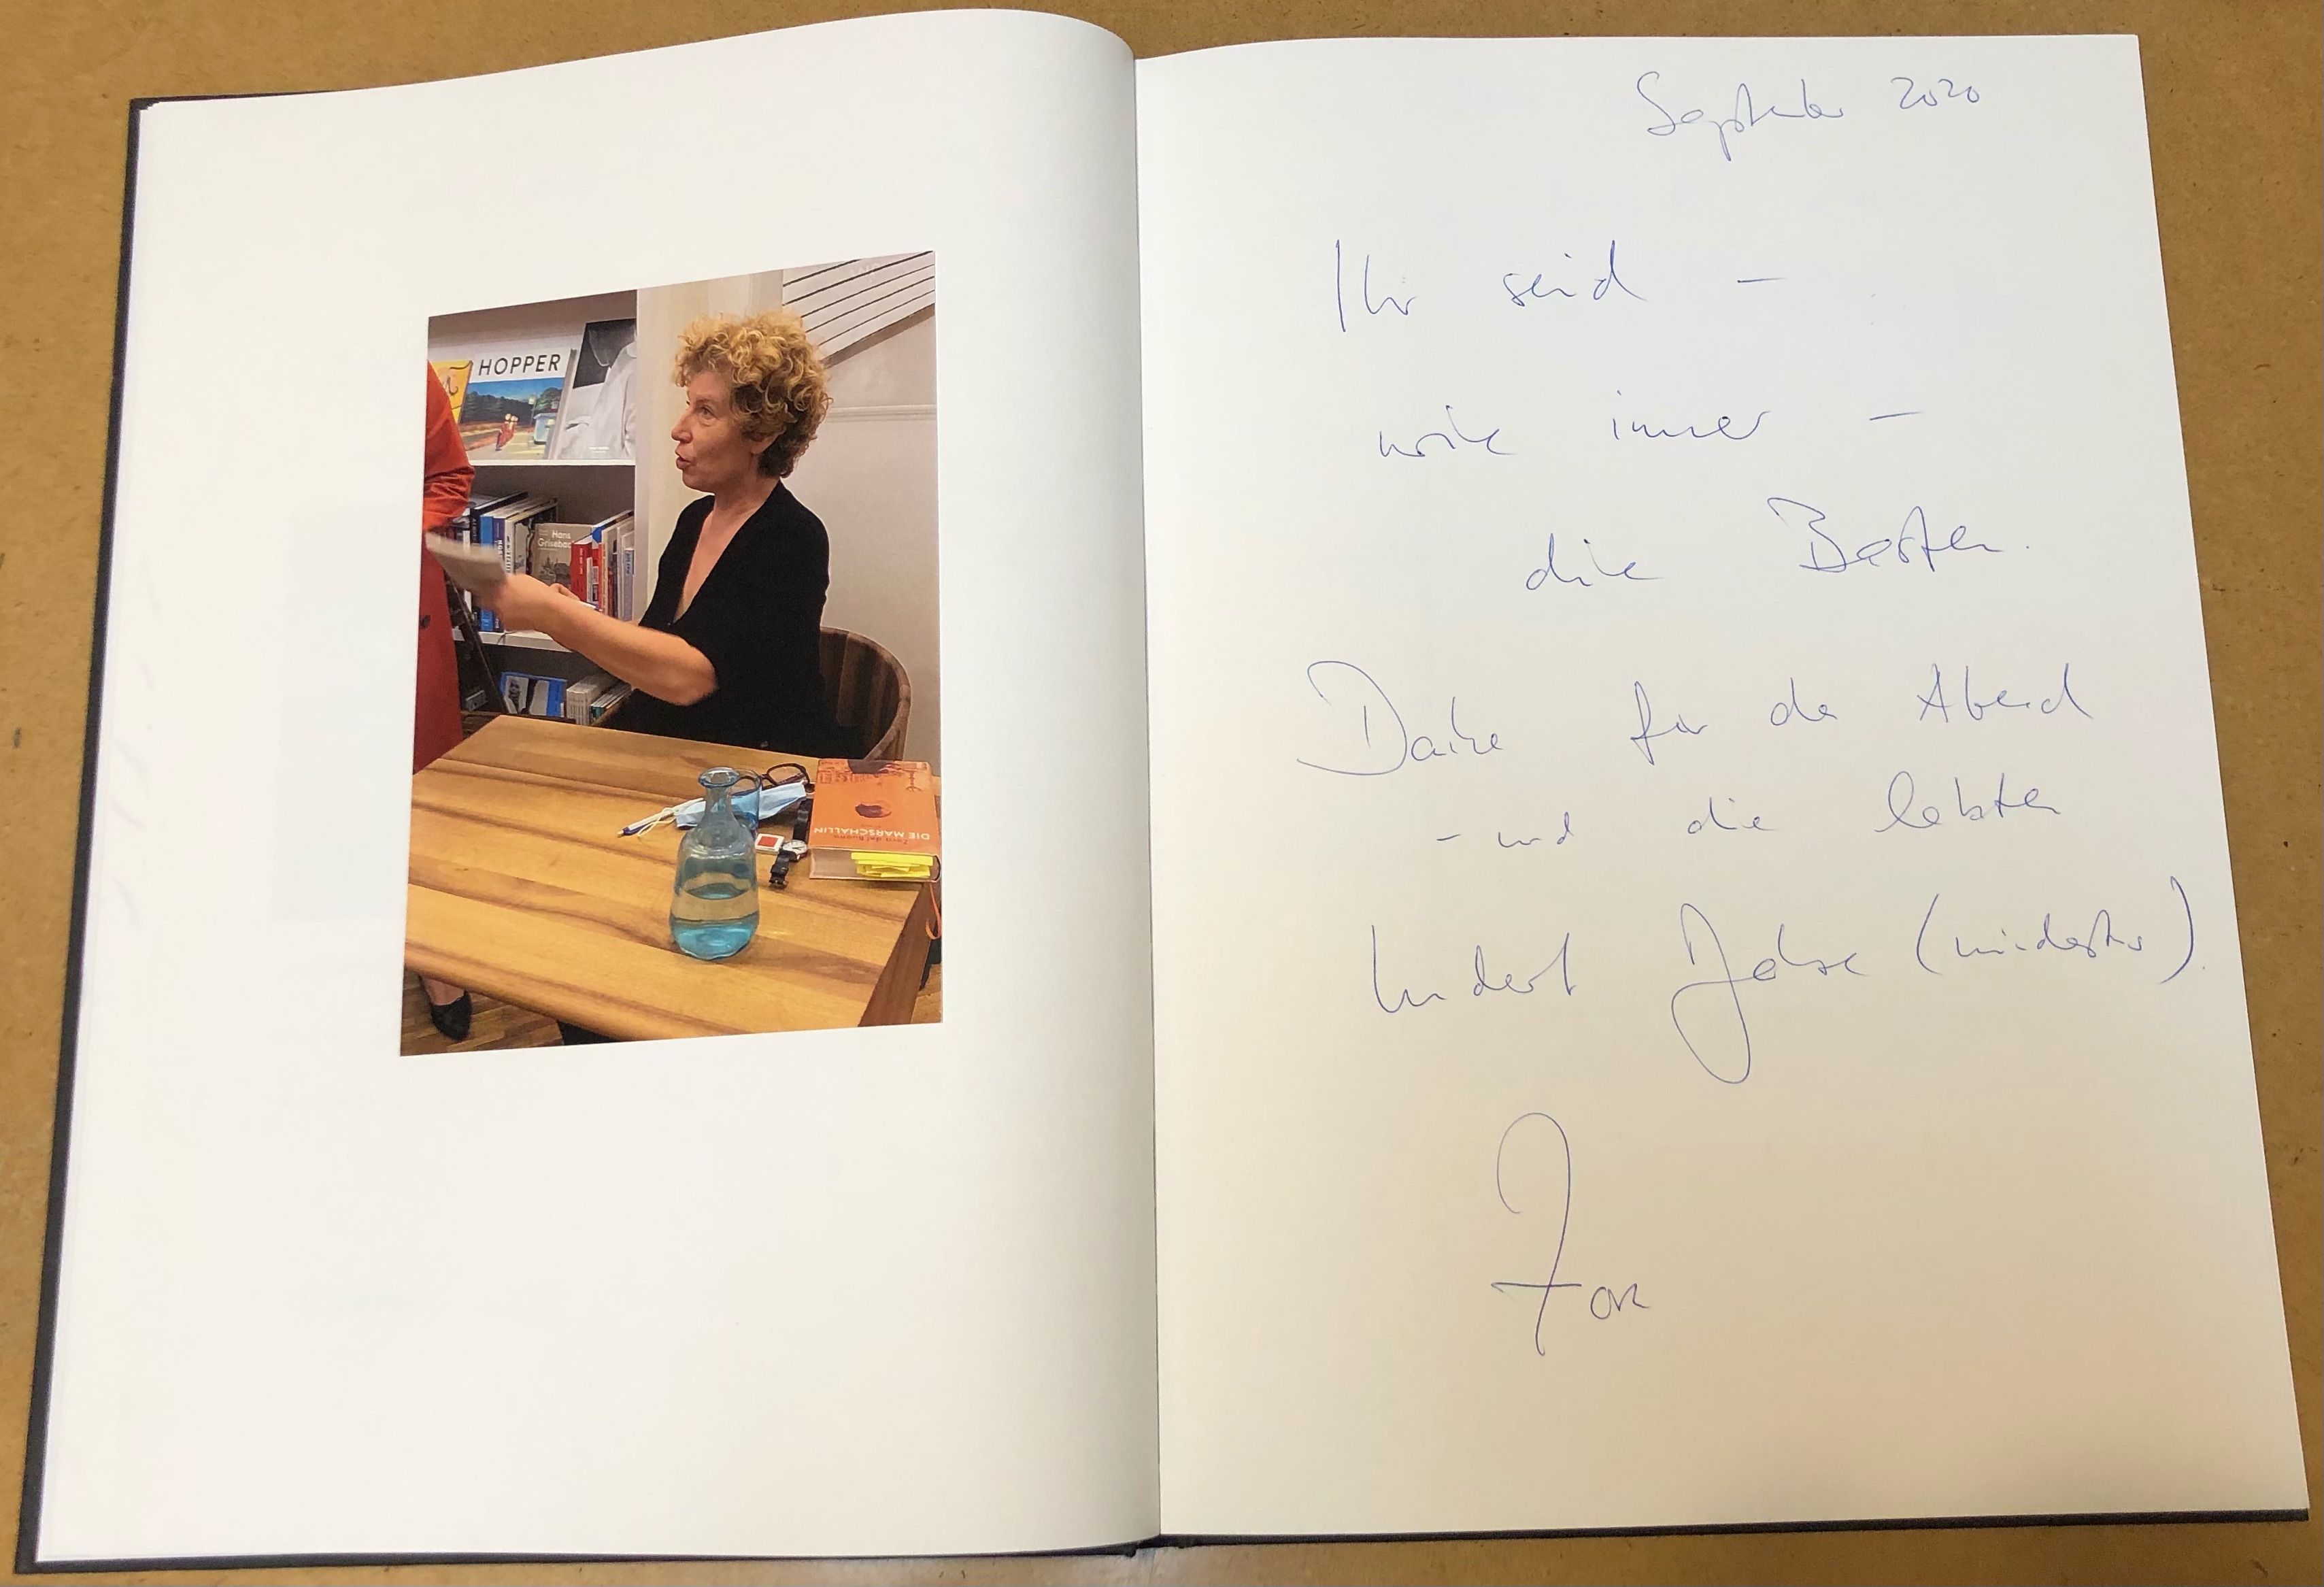 HOPPER
Hans
Grisebach
Zora del Buono
DIE MARSCHALLIN
September 2020
Ihr seid –
wie immer –
die Besten.
Danke für den Abend
– und die letzten
hundert Jahre (mindestens).
Zora